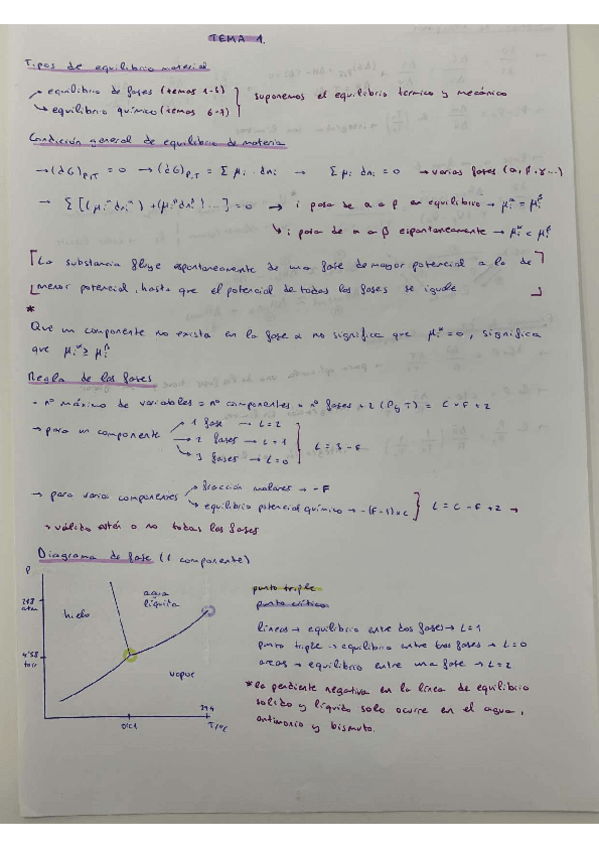 TEMA 1.
Tipos de equilibrio material
→ equilibrio de fases (temas 1-5)
↳ equilibrio químico (temas 6-7)
} suponemos el equilibrio térmico y mecánico
Condición general de equilibrio de materia
→ (dG)P,T = 0 → (dG)P,T = Σ μi · dni → Σ μi dni = 0 → varias fases (α, β, γ...)
→ Σ [(μi^α dni^α) + (μi^β dni^β) ...] = 0 → i pasa de α a β en equilibrio → μi^α = μi^β
↳ i pasa de α a β espontaneamente →
La substancia fluye espontaneamente de una fase de mayor potencial a la de
menor potencial, hasta que el potencial de todas las fases se iguale
*
Que un componente no exista en la fase α no significa que μi^α = 0, significa
que μi^α ≥ μi^β
Regla de las fases
· nº máximo de variables = nº componentes - nº fases + 2 (P y T) = C - F + 2
→ para un componente
1 fase → L = 2
2 fases → L = 1
3 fases → L = 0
} L = 3 - F
→ para varios componentes
fracción molares → - F
equilibrio potencial químico → - (F-1) × C
} L = C - F + 2 →
→ válido estén o no todas las fases
Diagrama de fase (1 componente)
P
218
atm
hielo
agua
líquida
4'58
torr
vapor
0'01
374
T, ºC
punto triple
punto crítico
líneas → equilibrio entre dos fases → L = 1
punto triple → equilibrio entre tres fases → L = 0
areas → equilibrio entre una fase → L = 2
* la pendiente negativa en la línea de equilibrio
solido y líquido solo ocurre en el agua,
antimonio y bismuto.